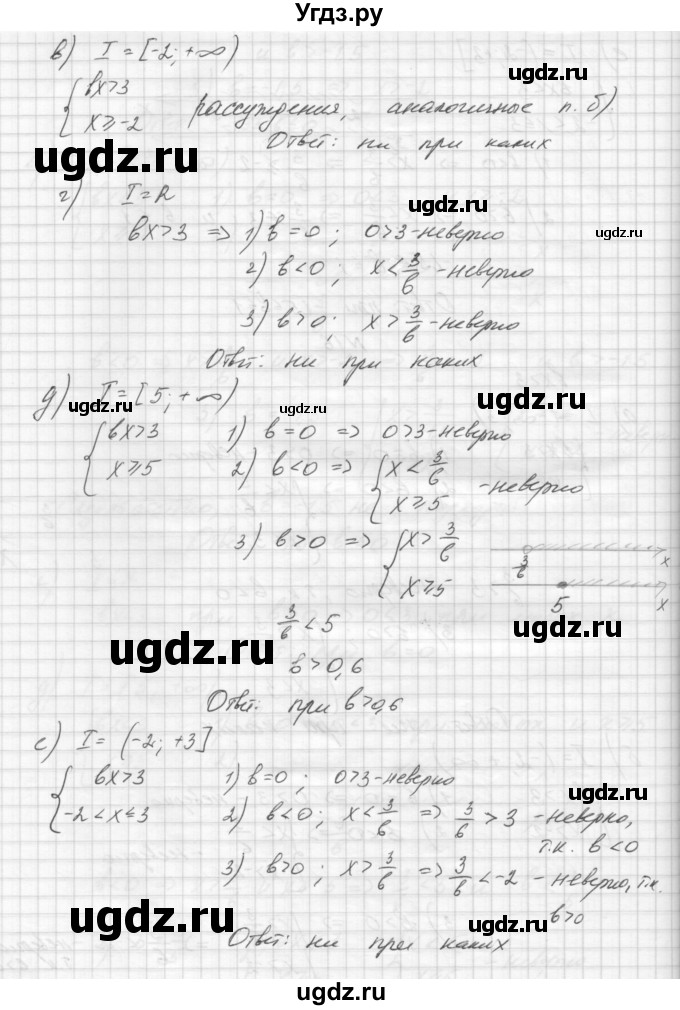 Угдз.ру
в) I = [-2; +∞)
{ bx>3
x≥-2 рассуждения, аналогичные п. б)
Ответ: ни при каких
ugdz.ru
г) I=R
bx>3 => 1) b=0; 0>3-неверно
ugdz.ru
2) b<0; x<3/b -неверно
3) b>0; x>3/b -неверно
ugdz.ru
Ответ: ни при каких
ugdz.ru
д) I=[5; +∞)
ugdz.ru
ugdz.ru
{ bx>3 1) b=0 => 0>3-неверно
x≥5 2) b<0 => { x<3/b
x≥5 -неверно
3) b>0 => { x>3/b 3/b x
x≥5 5 x
3/b<5
ugdz.ru
ugdz.ru
b>0,6
Ответ: при b>0,6
ugdz.ru
е) I= (-2; +3]
{ bx>3 1) b=0; 0>3-неверно
-2<x≤3 2) b<0; x<3/b => 3/b>3 -неверно,
т.к. b<0
3) b>0; x>3/b => 3/b<-2 -неверно, т.к.
b>0
ugdz.ru
ugdz.ru
Ответ: ни при каких
ugdz.ru
ugdz.ru